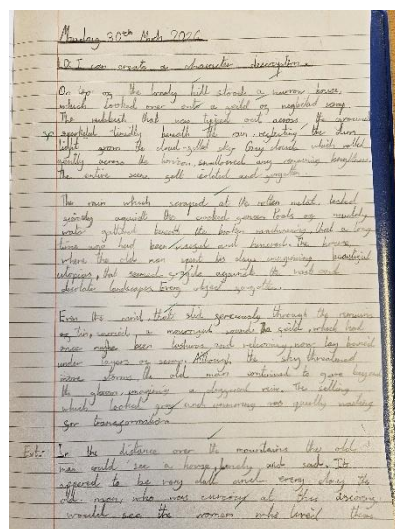 Monday 30th March 2026
LO: I can create a character description.
On top of the lonely hill stood a narrow house,
which looked over onto a field of neglected scrap.
The rubbish that was spread out across the ground
sp sparkled timidly beneath the rain, reflecting the dim
light from the cloud-filled sky. Grey clouds which rolled
gently across the horizon, swallowed any remaining brightness.
The entire scene felt isolated and forgotten.
The rain which scraped at the rotten metal, lashed
against the crooked Pools of muddy
water gathered beneath the broken machinery, that a long
time ago had been useful and The house,
where the old man spent his days imagining beautiful
utopias, that seemed fragile against the vast and
desolate landscape. Every object forgotten.
Even the wind, that slid through the remains
of tin, carried a mournful sound. The field, which had
once maybe been luscious and welcoming now lay buried
under layers of scrap. Although, the sky threatened
more storms the old man continued to gaze beyond
the gloom, imagining a different view. The valley
which looked grey and was quietly waiting
for transformation.
Ext:- In the distance over the mountains the old
man could see a house, lonely and sad. It
appeared to be very dark and every day the
old man, who was curious at this discovery
would see the women who lived there